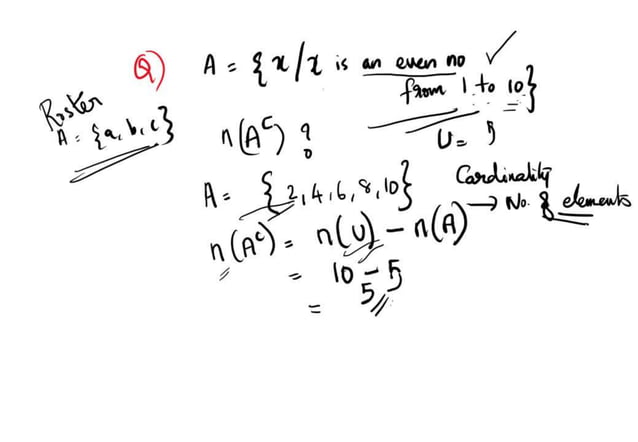 Q) A = {x/x is an even no
from 1 to 10}
Roster
A = {a, b, c}
n(Aᶜ) ?
U = 5
A = {2, 4, 6, 8, 10}
Cardinality
→ No. of elements
n(Aᶜ) = n(U) - n(A)
= 10 - 5
= 5